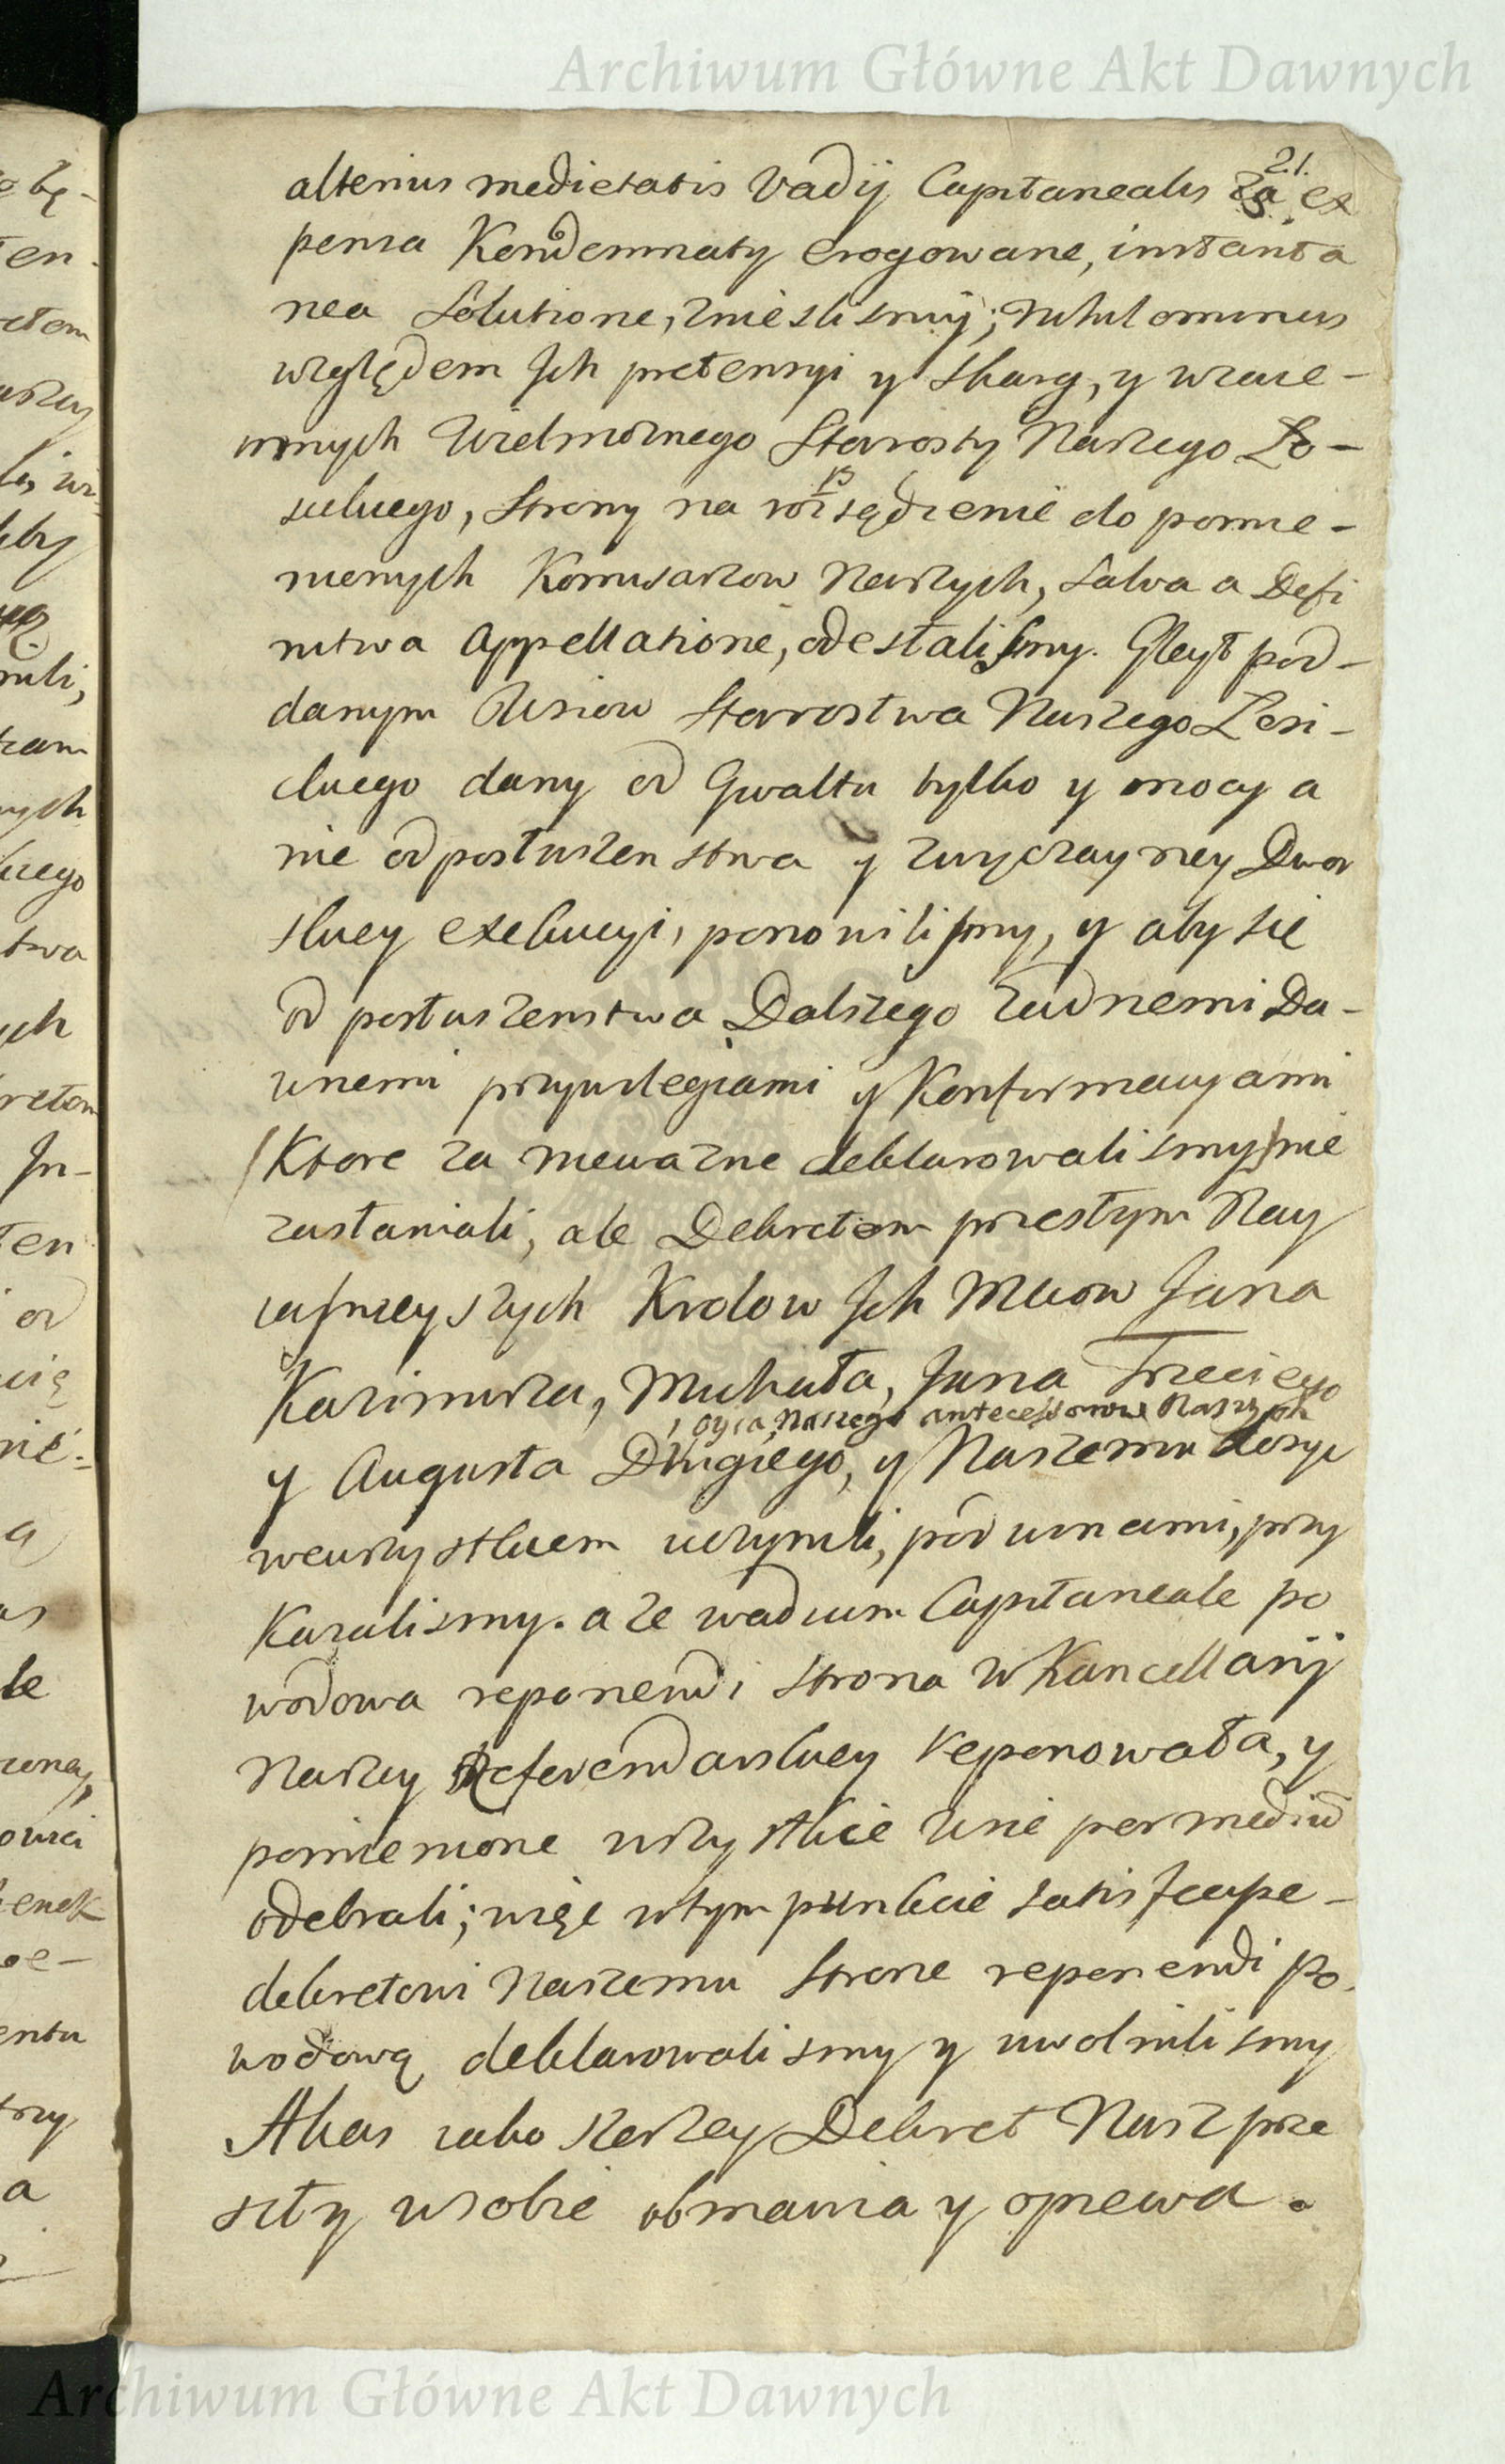 Archiwum Główne Akt Dawnych
21.
alterius medietatis Vadij Capitanealis za ex
pensa Kondemnaty erogowane, instanta
nea Solutione, znieslismy; nihilominus
względem Jch pretensyi y skarg, y wzaie-
mnych Wielmoznego Starosty Naszego Lo-
sickiego, strony na rozsądzenie do pomie-
nionych Komisarzow Naszych, salva a Defi
nitiva Appellatione, odesłalismy. Gleyt pod-
danym Wsiow Starostwa Naszego Łosi-
ckiego dany od Gwałtu tylko y mocy a
nie od posłuszenstwa y zwyczayney Dwor
skiey exekucyi, ponowilismy, y aby się
od posłuszenstwa Dalszego żadnemi Da-
wnemi przywilegiami y Konfirmacyami
(Ktore za niewazne deklarowalismy) nie
zasłaniali, ale Dekretom przeszłym Nay
iasnieyszych Krolow Jch Mciow Jana
Kazimirza, Michała, Jana Trzeciego
, oyca Naszego antecessorow Naszych
y Augusta Drugiego, y Naszemu dosyc
wewszystkiem uczynili, pod winami, przy
Kazalismy. a ze wadium Capitaneale po
wodowa reponendi strona w Kancellarij
Naszey Referendarskiey reponowała, y
pomienione wszystkie Wsie per mediū
odebrali; więc w tym punkcie satis fecisse
dekretowi Naszemu strone reponendi po-
wodową deklarowalismy y uwolnilismy
Akas iako szerzey Dekret Nasz prze
szły w sobie obmawia y opiewa.
Archiwum Główne Akt Dawnych